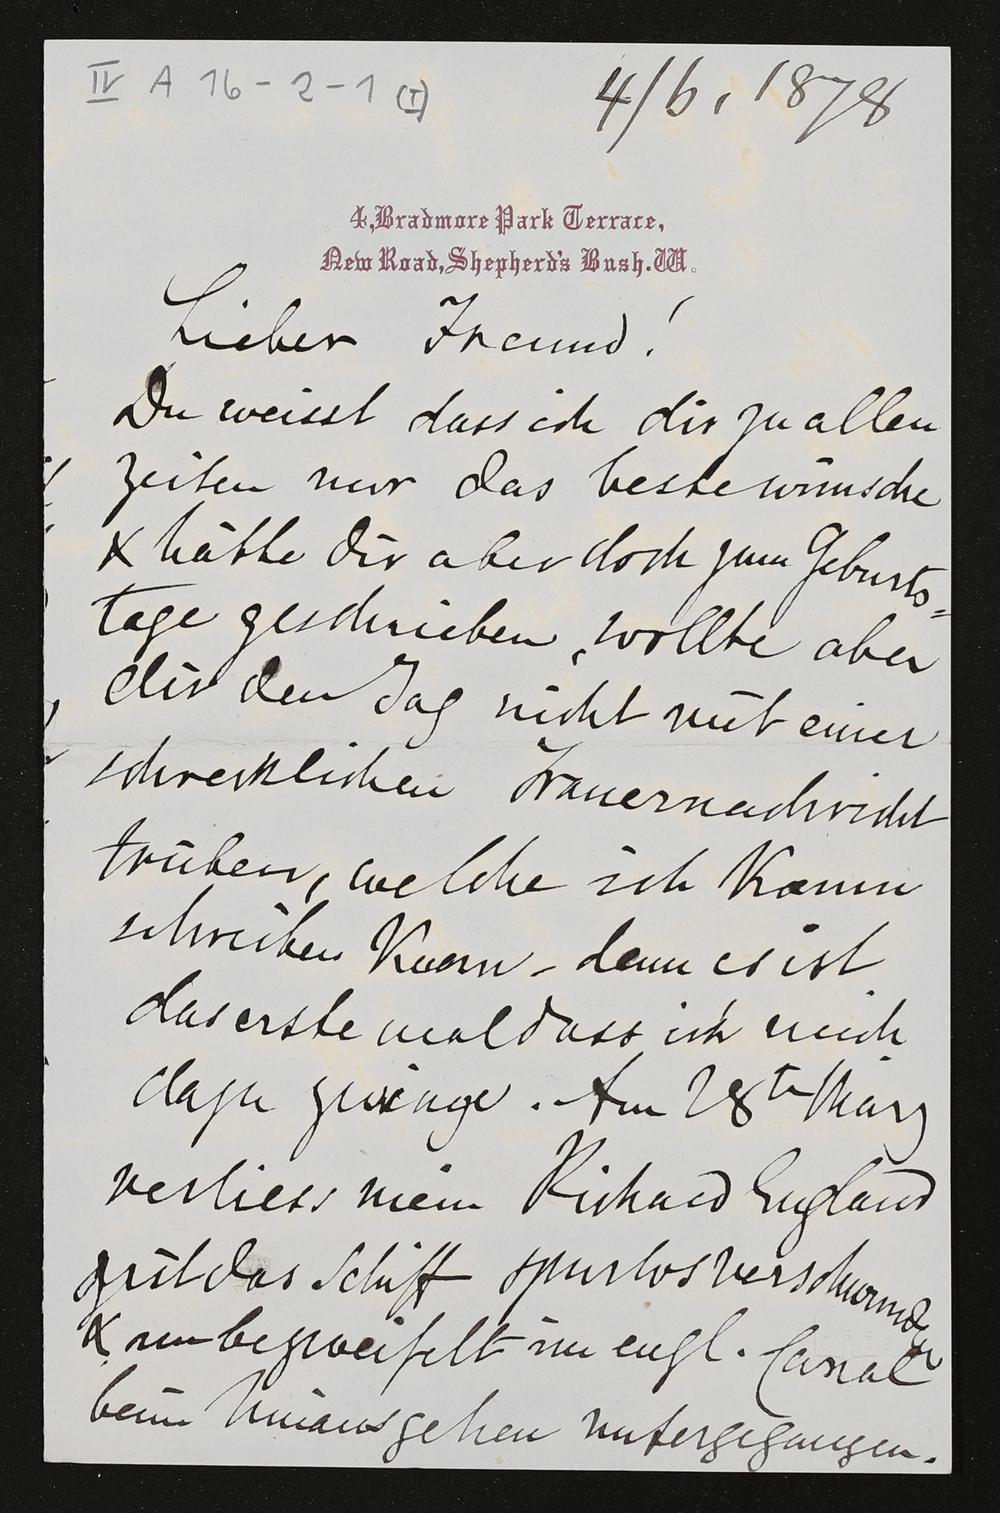 IV A 16-2-1 (I)
4/6, 1878
4, Bradmore Park Terrace,
New Road, Shepherd's Bush. W.
Lieber Freund!
Du weisst dass ich dir zu allen
zeiten nur das beste wünsche
& hätte dir aber doch zum Geburts-
tage geschrieben, wollte aber
dir den Tag nicht mit einer
schrecklichen Trauernachricht
trüben, welche ich kaum
schreiben kann - denn es ist
das erste mal dass ich mich
dazu zwinge. Am 28t März
verliess mein Richard England
seit das Schiff spurlos verschwunden
& unbezweifelt im engl. Canal
beim hinausgehen untergegangen.